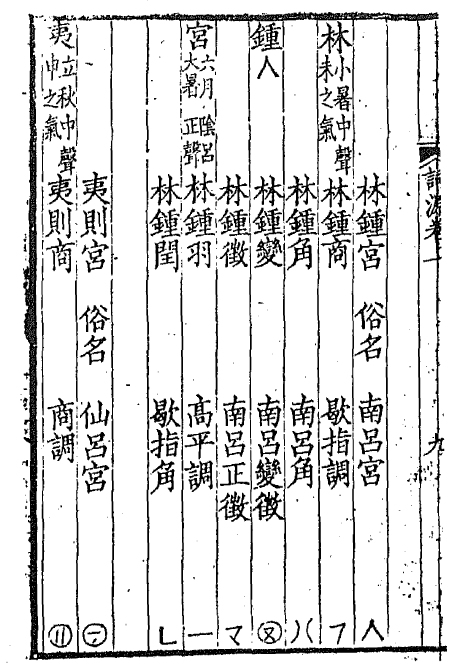 詞源卷一 九
林鍾宮 俗名 南呂宮 人
林 小暑中聲 未之氣 林鍾商 歇指調 フ
林鍾角 南呂角 八
鍾 人 林鍾變 南呂變徵
林鍾徵 南呂正徵 マ
宮 六月陰呂 大暑正聲 林鍾羽 高平調 一
林鍾閏 歇指角 ㄴ
夷則宮 俗名 仙呂宮
夷 立秋中聲 申之氣 夷則商 商調